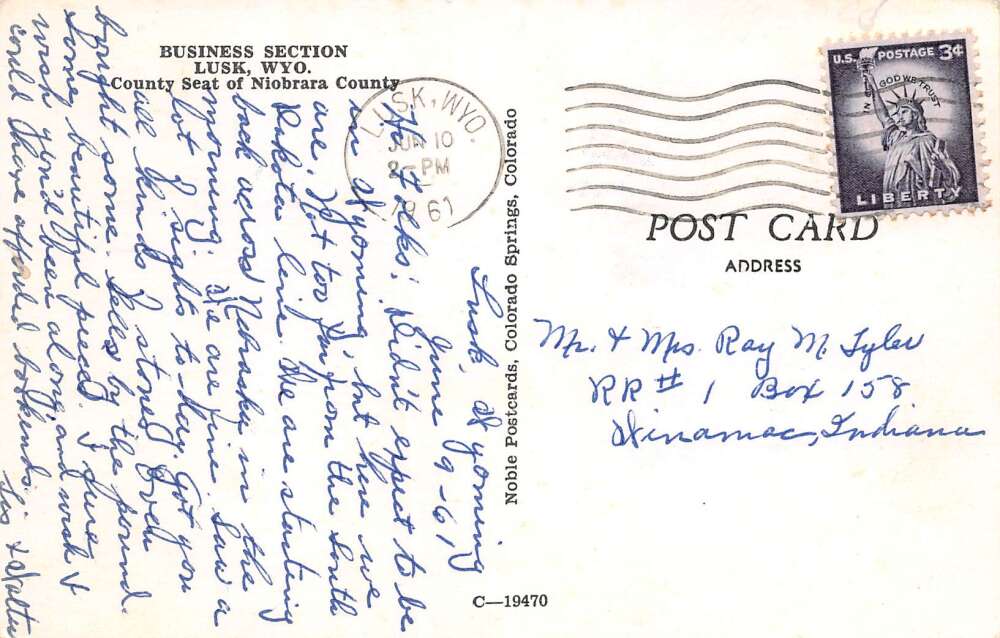 BUSINESS SECTION
LUSK, WYO.
County Seat of Niobrara County
Lusk, Wyoming
June 9-61
Hi Folks! Didn't expect to be
in Wyoming, but here we
are. Not too far from the South
Dakota line. We are starting
back across Nebraska in the
morning. We are fine. Saw a
lot of sights to-day. Got you
all kinds of stones. Even
bought some. Sells by the pound.
Some beautiful pieces. I sure
wish you'd been along, and wish I
could have afforded bookends.
Sis & Walter
Noble Postcards, Colorado Springs, Colorado
C—19470
LUSK, WYO.
JUN 10
PM
1961
U.S. POSTAGE 3¢
IN GOD WE TRUST
LIBERTY
POST CARD
ADDRESS
Mr. & Mrs. Ray M. Tyler
RR# 1 Box 158
Winamac, Indiana